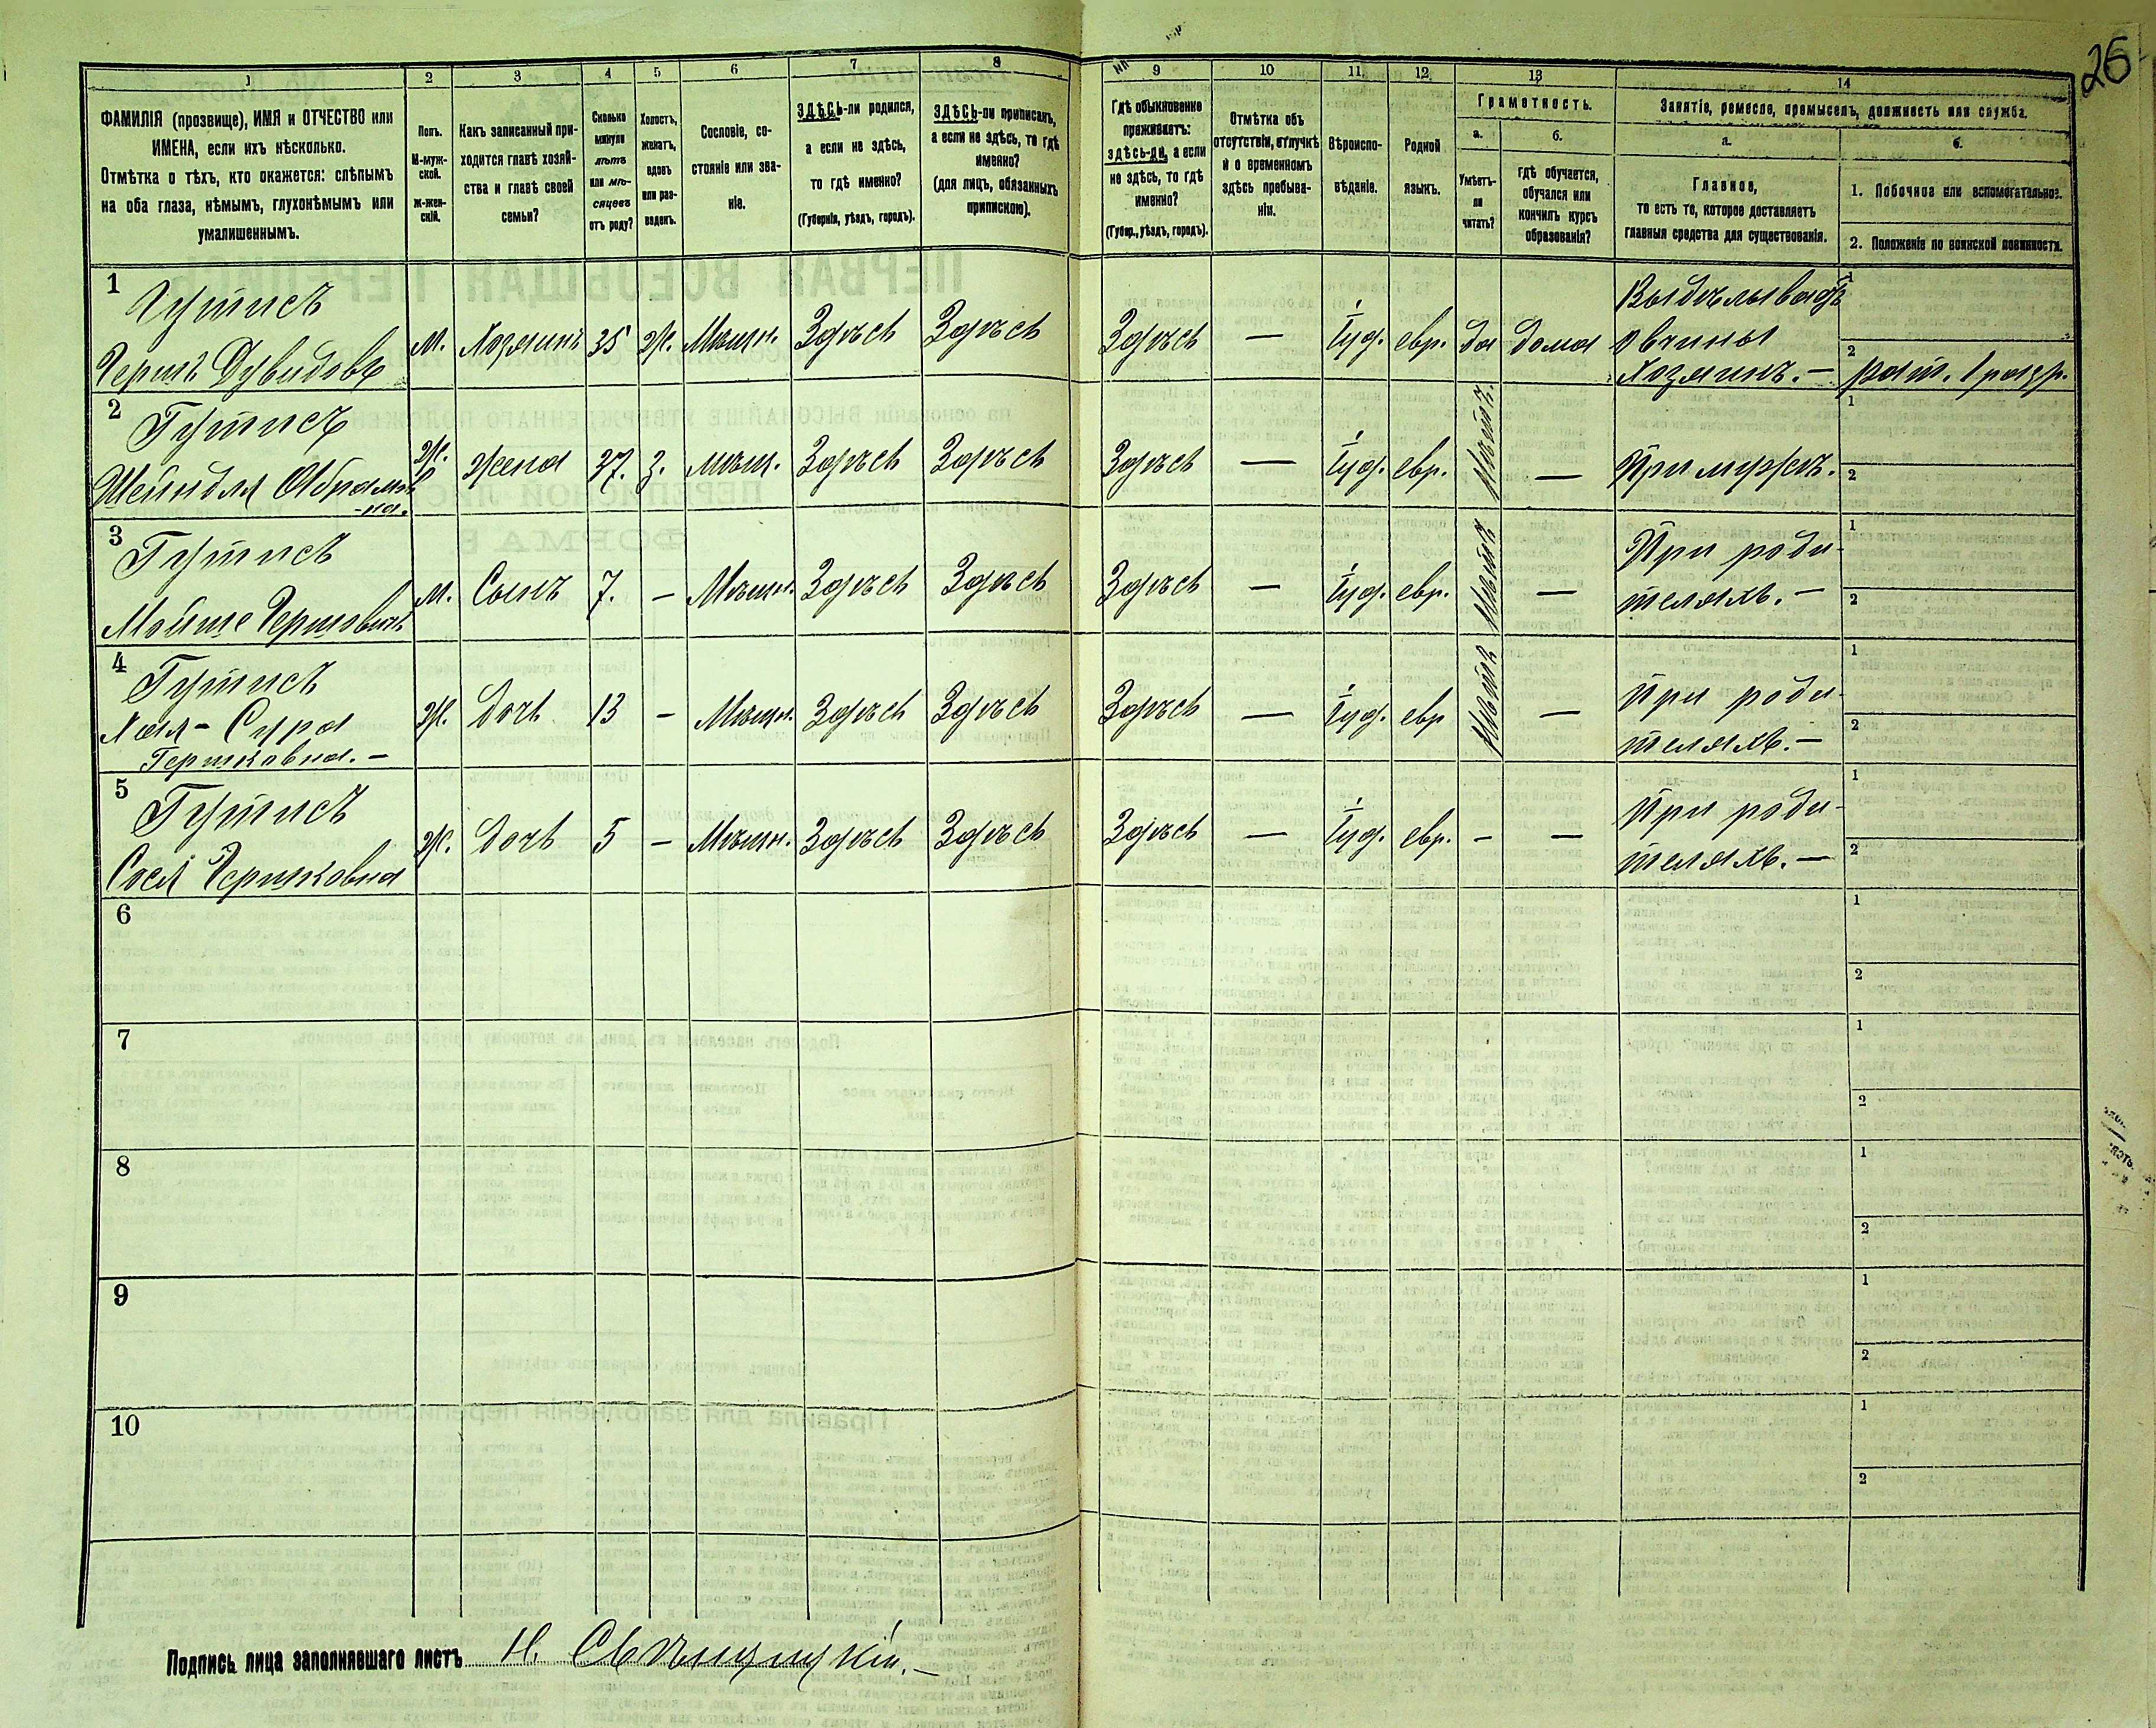 26
1
2
3
4
5
6
7
8
9
10
11
12
13
14
ФАМИЛІЯ (прозвище), ИМЯ и ОТЧЕСТВО или
ИМЕНА, если ихъ нѣсколько.
Отмѣтка о тѣхъ, кто окажется: слѣпымъ
на оба глаза, нѣмымъ, глухонѣмымъ или
умалишеннымъ.
Полъ.
М-муж-
ской.
ж-жен-
скій.
Какъ записанный при-
ходится главѣ хозяй-
ства и главѣ своей
семьи?
Сколько
минуло
лѣтъ
или мѣ-
сяцевъ
отъ роду?
Холостъ,
женатъ,
вдовъ
или раз-
веденъ.
Сословіе, со-
стояніе или зва-
ніе.
ЗДѢСЬ-ли родился,
а если не здѣсь,
то гдѣ именно?
(Губернія, уѣздъ, городъ).
ЗДѢСЬ-ли приписанъ,
а если не здѣсь, то гдѣ
именно?
(для лицъ, обязанныхъ
припискою).
Гдѣ обыкновенно
проживаетъ:
здѣсь-ли, а если
не здѣсь, то гдѣ
именно?
(Губер., уѣздъ, городъ).
Отмѣтка объ
отсутствіи, отлучкѣ
и о временномъ
здѣсь пребыва-
ніи.
Вѣроиспо-
вѣданіе.
Родной
языкъ.
Грамотность.
а.
Умѣетъ-
ли
читать?
б.
гдѣ обучается,
обучался или
кончилъ курсъ
образованія?
Занятіе, ремесло, промыселъ, должность или служба.
а.
Главное,
то есть то, которое доставляетъ
главныя средства для существованія.
б.
1. Побочное или вспомогательное.
2. Положеніе по воинской повинности.
1
Гутисъ
Гершъ Дувидовъ
м. Хозяинъ 35 ж. Мѣщн. Здѣсь Здѣсь Здѣсь — Іуд. евр. да дома
Выдѣлываетъ
овчины
Хозяинъ. —
1
2
рат. 1 разр.
2
Гутисъ
Шейндля Абрамов
-на.
ж. жена 37. з. мѣщ. Здѣсь Здѣсь Здѣсь — Іуд. евр. —
При мужѣ.
1
2
3
Гутисъ
Мойше Гершовичъ
м. Сынъ 7. — Мѣщн. Здѣсь Здѣсь Здѣсь — Іуд. евр. —
При роди-
теляхъ. —
1
2
4
Гутисъ
Хая-Сура
Гершковна. —
ж. дочь 13 — Мѣщн. Здѣсь Здѣсь Здѣсь — Іуд. евр —
При роди-
теляхъ. —
1
2
5
Гутисъ
Сося Гершковна
ж. дочь 5 — Мѣщн. Здѣсь Здѣсь Здѣсь — Іуд. евр. - —
При роди-
теляхъ. —
1
2
6
1
2
7
1
2
8
1
2
9
1
2
10
1
2
Подпись лица заполнявшаго листъ Н.